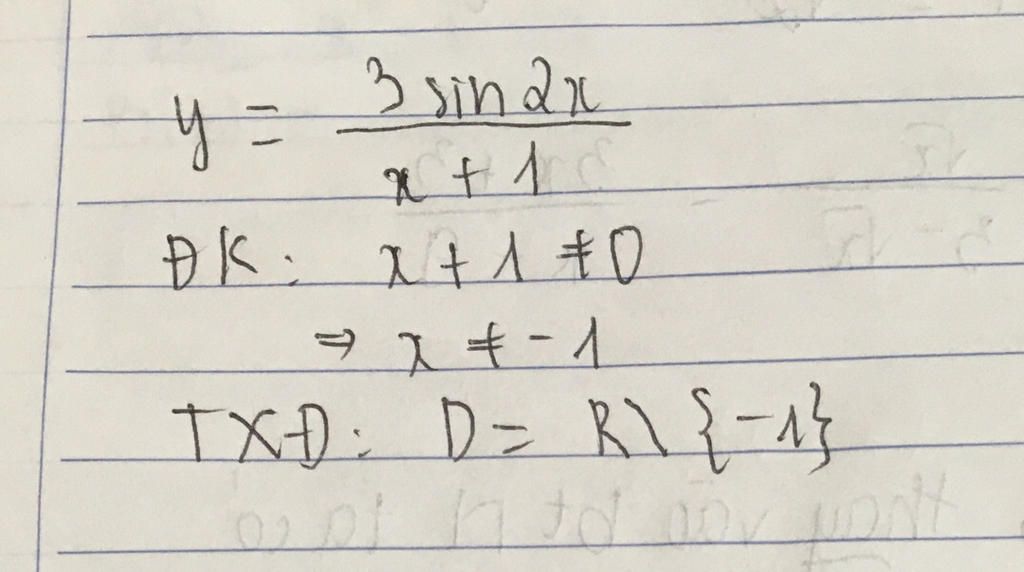 y = 3 sin 2x / x + 1
ĐK: x + 1 ≠ 0
⇒ x ≠ -1
TXĐ: D = R \ {-1}